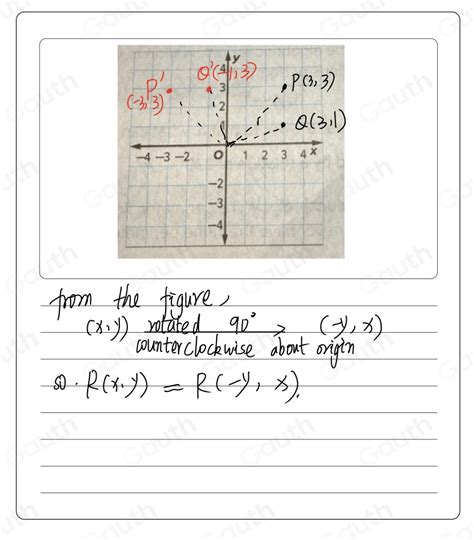 y
4
Q'(-1,3)
P'
3
P(3,3)
(-3,3)
2
Q(3,1)
-4 -3 -2 O 1 2 3 4 x
-2
-3
-4
from the figure,
(x,y) rotated 90° (-y, x)
counterclockwise about origin
so. R(x,y) = R(-y, x).
Gauth